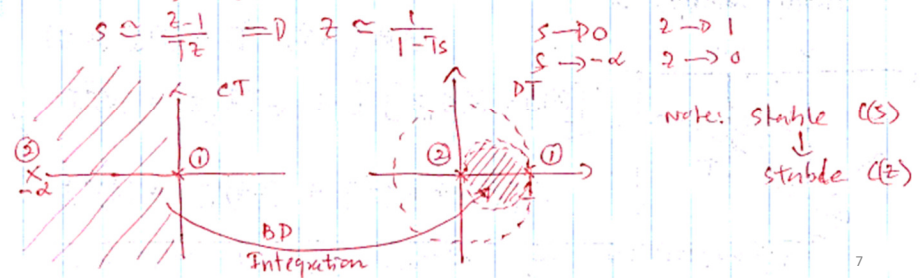 s ≃ (z-1)/(Tz) ⇒ z ≃ 1/(1-Ts)
s → 0 z → 1
s → -∞ z → 0
CT
DT
Note: stable C(s)
↓
stable C(z)
② ①
② ①
-∞
BD
Integration
7